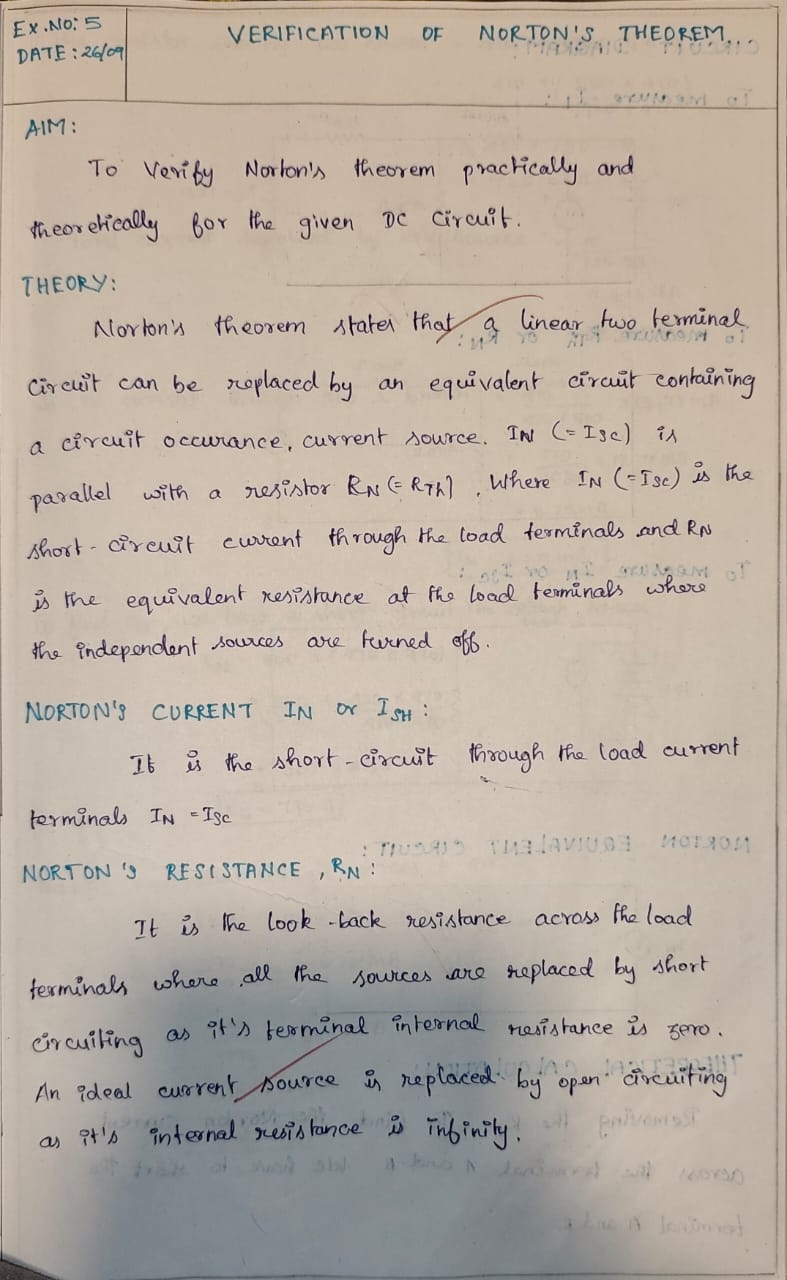 Ex.No: 5
DATE: 26/09
VERIFICATION OF NORTON'S THEOREM...
AIM:
To Verify Norton's theorem practically and
theoretically for the given DC Circuit.
THEORY:
Norton's theorem states that a linear two terminal
Circuit can be replaced by an equivalent circuit containing
a circuit occurance, current source. IN (= ISC) is
parallel with a resistor RN (= RTh), Where IN (= ISC) is the
short-circuit current through the load terminals and RN
is the equivalent resistance at the load terminals where
the independent sources are turned off.
NORTON'S CURRENT IN or ISH:
It is the short-circuit through the load current
terminals IN = ISC
NORTON'S RESISTANCE, RN:
It is the look-back resistance across the load
terminals where all the sources are replaced by short
circuiting as it's terminal internal resistance is zero.
An ideal current source is replaced by open circuiting
as it's internal resistance is infinity.